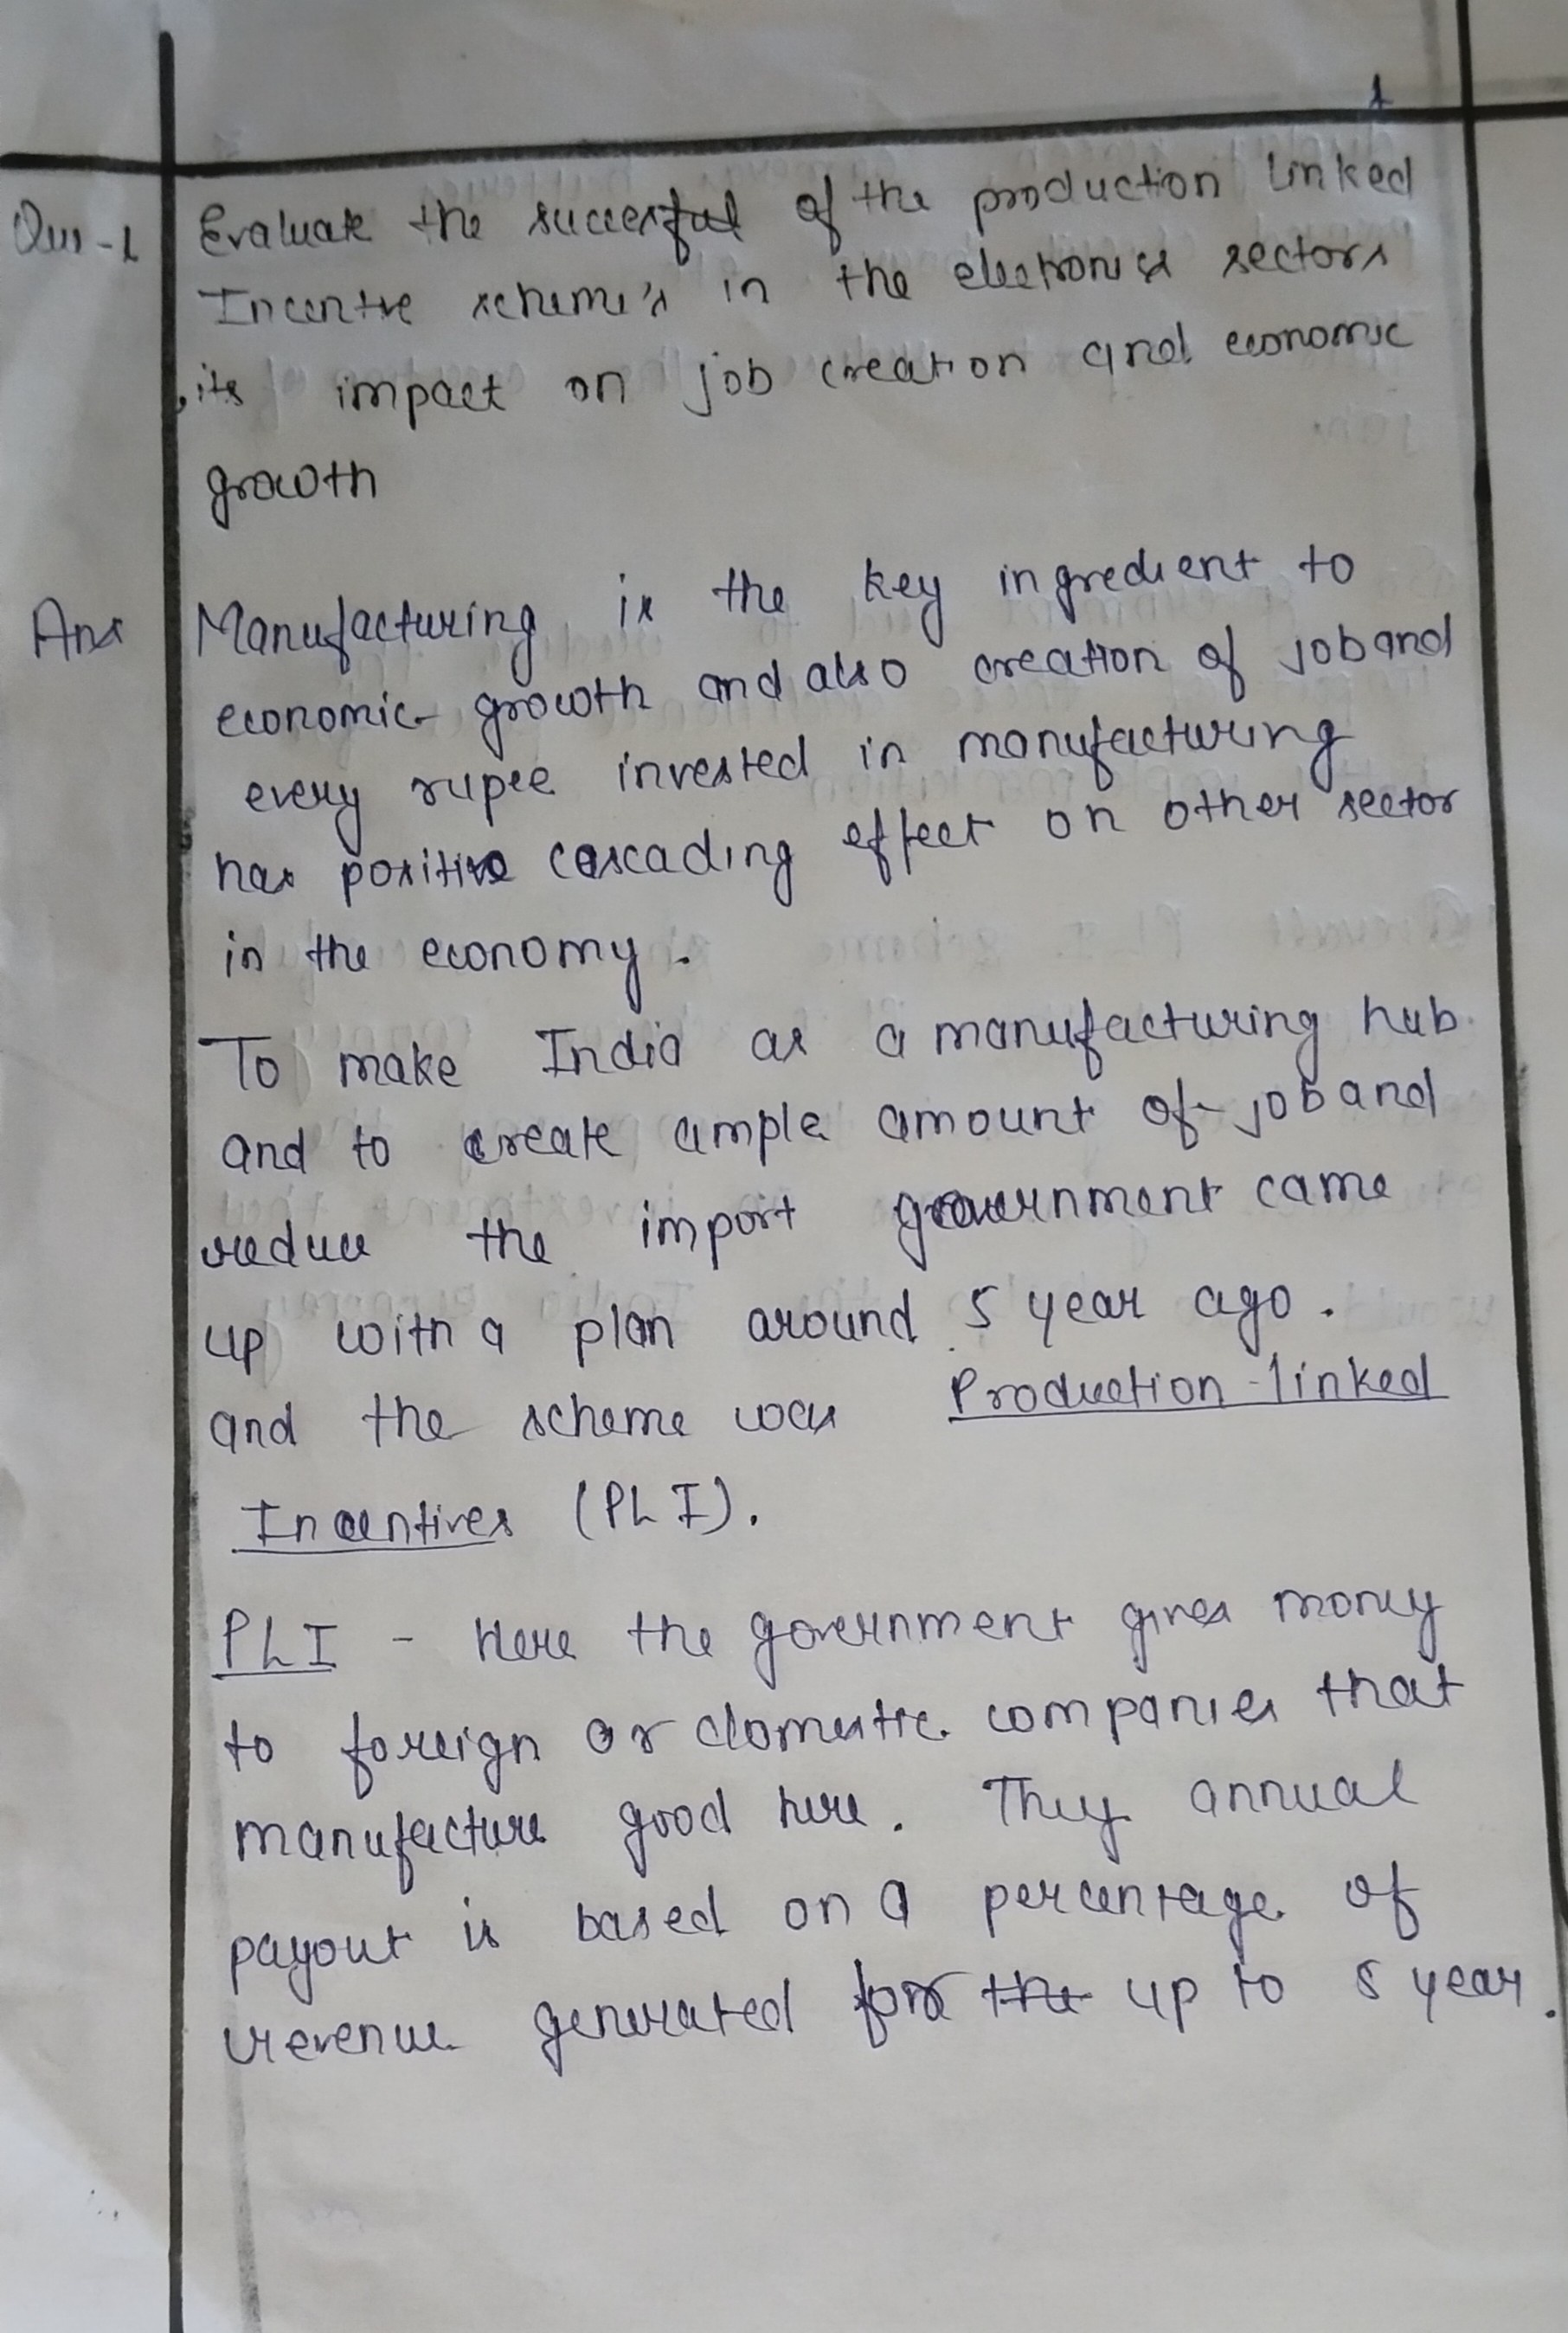 1
Ques-1 Evaluate the success of the production linked
Incentve scheme's in the electronics sectors
its impact on job creation and economic
growth
Ans Manufacturing is the key ingredient to
economic growth and also creation of job and
every rupee invested in manufacturing
has positive cascading effect on other sector
in the economy.
To make India as a manufacturing hub
and to create ample amount of job and
reduce the import government came
up with a plan around 5 year ago.
and the scheme was Production-linked
Incentives (PLI).
PLI - Here the government gives money
to foreign or domestic companies that
manufacture good here. They annual
payout is based on a percentage of
revenue generated for the up to 5 year.